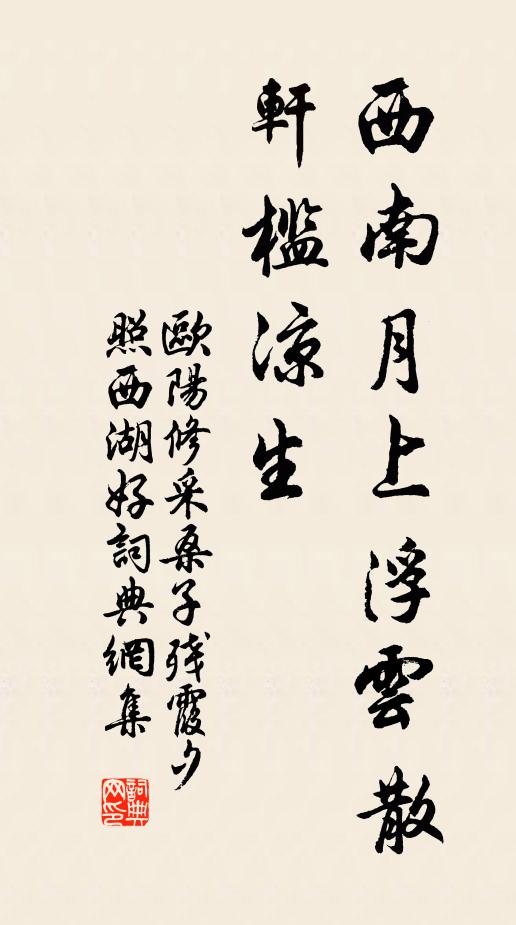 西南月上浮雲散
軒檻涼生
歐陽修采桑子残霞夕
照西湖好詞典網集
詞典
网印